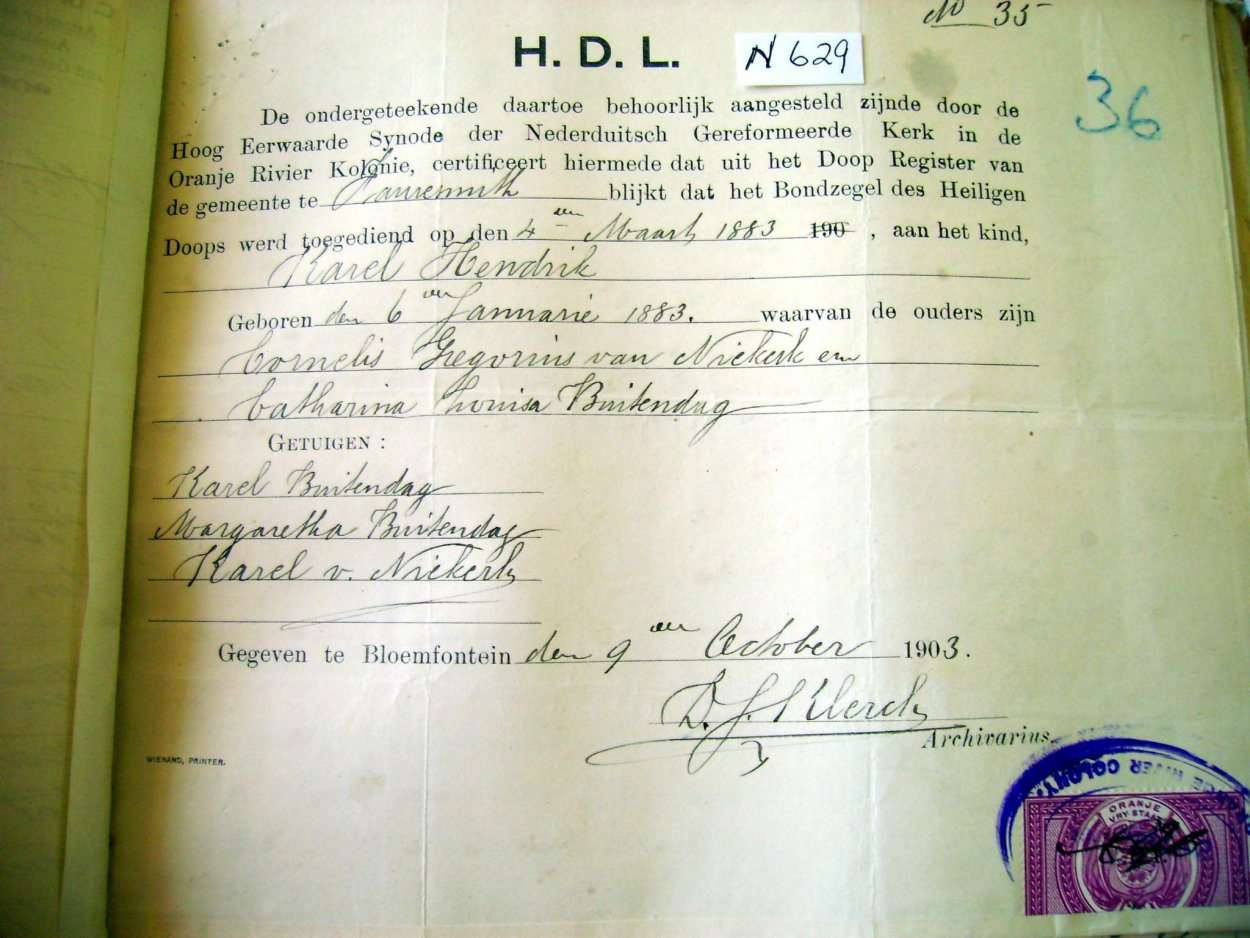 No 35
H. D. L.
N 629
36
De ondergeteekende daartoe behoorlijk aangesteld zijnde door de
Hoog Eerwaarde Synode der Nederduitsch Gereformeerde Kerk in de
Oranje Rivier Kolonie, certificeert hiermede dat uit het Doop Register van
de gemeente te Fauresmith blijkt dat het Bondzegel des Heiligen
Doops werd toegediend op den 4en Maart 1883 190 , aan het kind,
Karel Hendrik
Geboren den 6en Januarie 1883. waarvan de ouders zijn
Cornelis Gregorius van Niekerk en
Catharina Louisa Buitendag
GETUIGEN :
Karel Buitendag
Margaretha Buitendag
Karel v. Niekerk
Gegeven te Bloemfontein den 9en October 1903.
D. J. Klerck
Archivarius.
WIENAND, PRINTER.
RIVER COLONY.
ORANJE
VRY STAAT